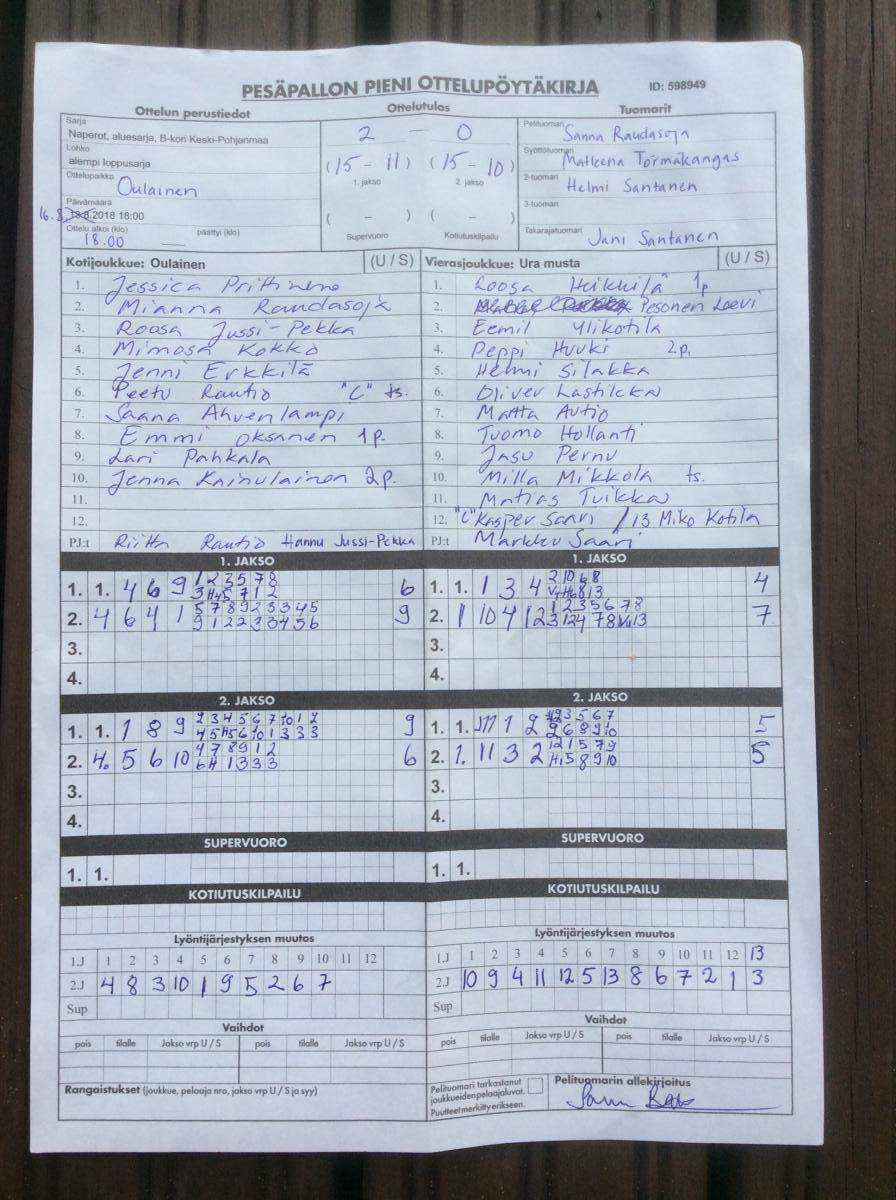 PESÄPALLON PIENI OTTELUPÖYTÄKIRJA ID: 598949
Ottelun perustiedot Ottelutulos Tuomarit
Sarja
Naperot, aluesarja, B-kori Keski-Pohjanmaa
Lohko
alempi loppusarja
Ottelupaikka Oulainen
Päivämäärä
16.8. 2018 18:00
Ottelu alkoi (klo) päättyi (klo)
18.00
2 - 0
(15 - 11) (15 - 10)
1. jakso 2. jakso
( - ) ( - )
Supervuoro Kotiutuskilpailu
Pelituomari Sanna Raudasoja
Syöttötuomari Matleena Törmäkangas
2-tuomari Helmi Santanen
3-tuomari
Takarajatuomari Jani Santanen
Kotijoukkue: Oulainen (U / S)
1. Jessica Prittinen
2. Mianna Raudasoja
3. Roosa Jussi-Pekka
4. Mimosa Kokko
5. Jenni Erkkilä
6. Peetu Rautio "C" ts.
7. Saana Ahvenlampi
8. Emmi Oksanen 1p.
9. Lari Pahkala
10. Jenna Kainulainen 2p.
11.
12.
PJ:t Riitta Rautio Hannu Jussi-Pekka
Vierasjoukkue: Ura musta (U / S)
1. Roosa Heikkilä 1p
2. Pesonen Leevi
3. Eemil Ylikotila
4. Peppi Huuki 2p.
5. Helmi Silakka
6. Oliver Lastikka
7. Matta Autio
8. Tuomo Hollanti
9. Jasu Pernu
10. Milla Mikkola ts.
11. Matias Tuikka
12. "C" Kasper Saari / 13 Miko Kotila
PJ:t Markku Saari
1. JAKSO
1. 1. 4 6 9 6
2. 4 6 4 1 9
3.
4.
1. JAKSO
1. 1. 1 3 4 4
2. 1 10 4 12 7
3.
4.
2. JAKSO
1. 1. 1 8 9 9
2. 4. 5 6 10 6
3.
4.
2. JAKSO
1. 1. 1 2 5
2. 1. 11 3 2 5
3.
4.
SUPERVUORO
1. 1.
SUPERVUORO
1. 1.
KOTIUTUSKILPAILU
KOTIUTUSKILPAILU
Lyöntijärjestyksen muutos
1.J 1 2 3 4 5 6 7 8 9 10 11 12
2.J 4 8 3 10 1 9 5 2 6 7
Sup
Lyöntijärjestyksen muutos
1.J 1 2 3 4 5 6 7 8 9 10 11 12 13
2.J 10 9 4 11 12 5 13 8 6 7 2 1 3
Sup
Vaihdot
pois tilalle Jakso vrp U / S pois tilalle Jakso vrp U / S
Vaihdot
pois tilalle Jakso vrp U / S pois tilalle Jakso vrp U / S
Rangaistukset (joukkue, pelaaja nro, jakso vrp U / S ja syy)
Pelituomari tarkastanut
joukkueiden pelaajaluvat.
Puutteet merkitty erikseen.
Pelituomarin allekirjoitus